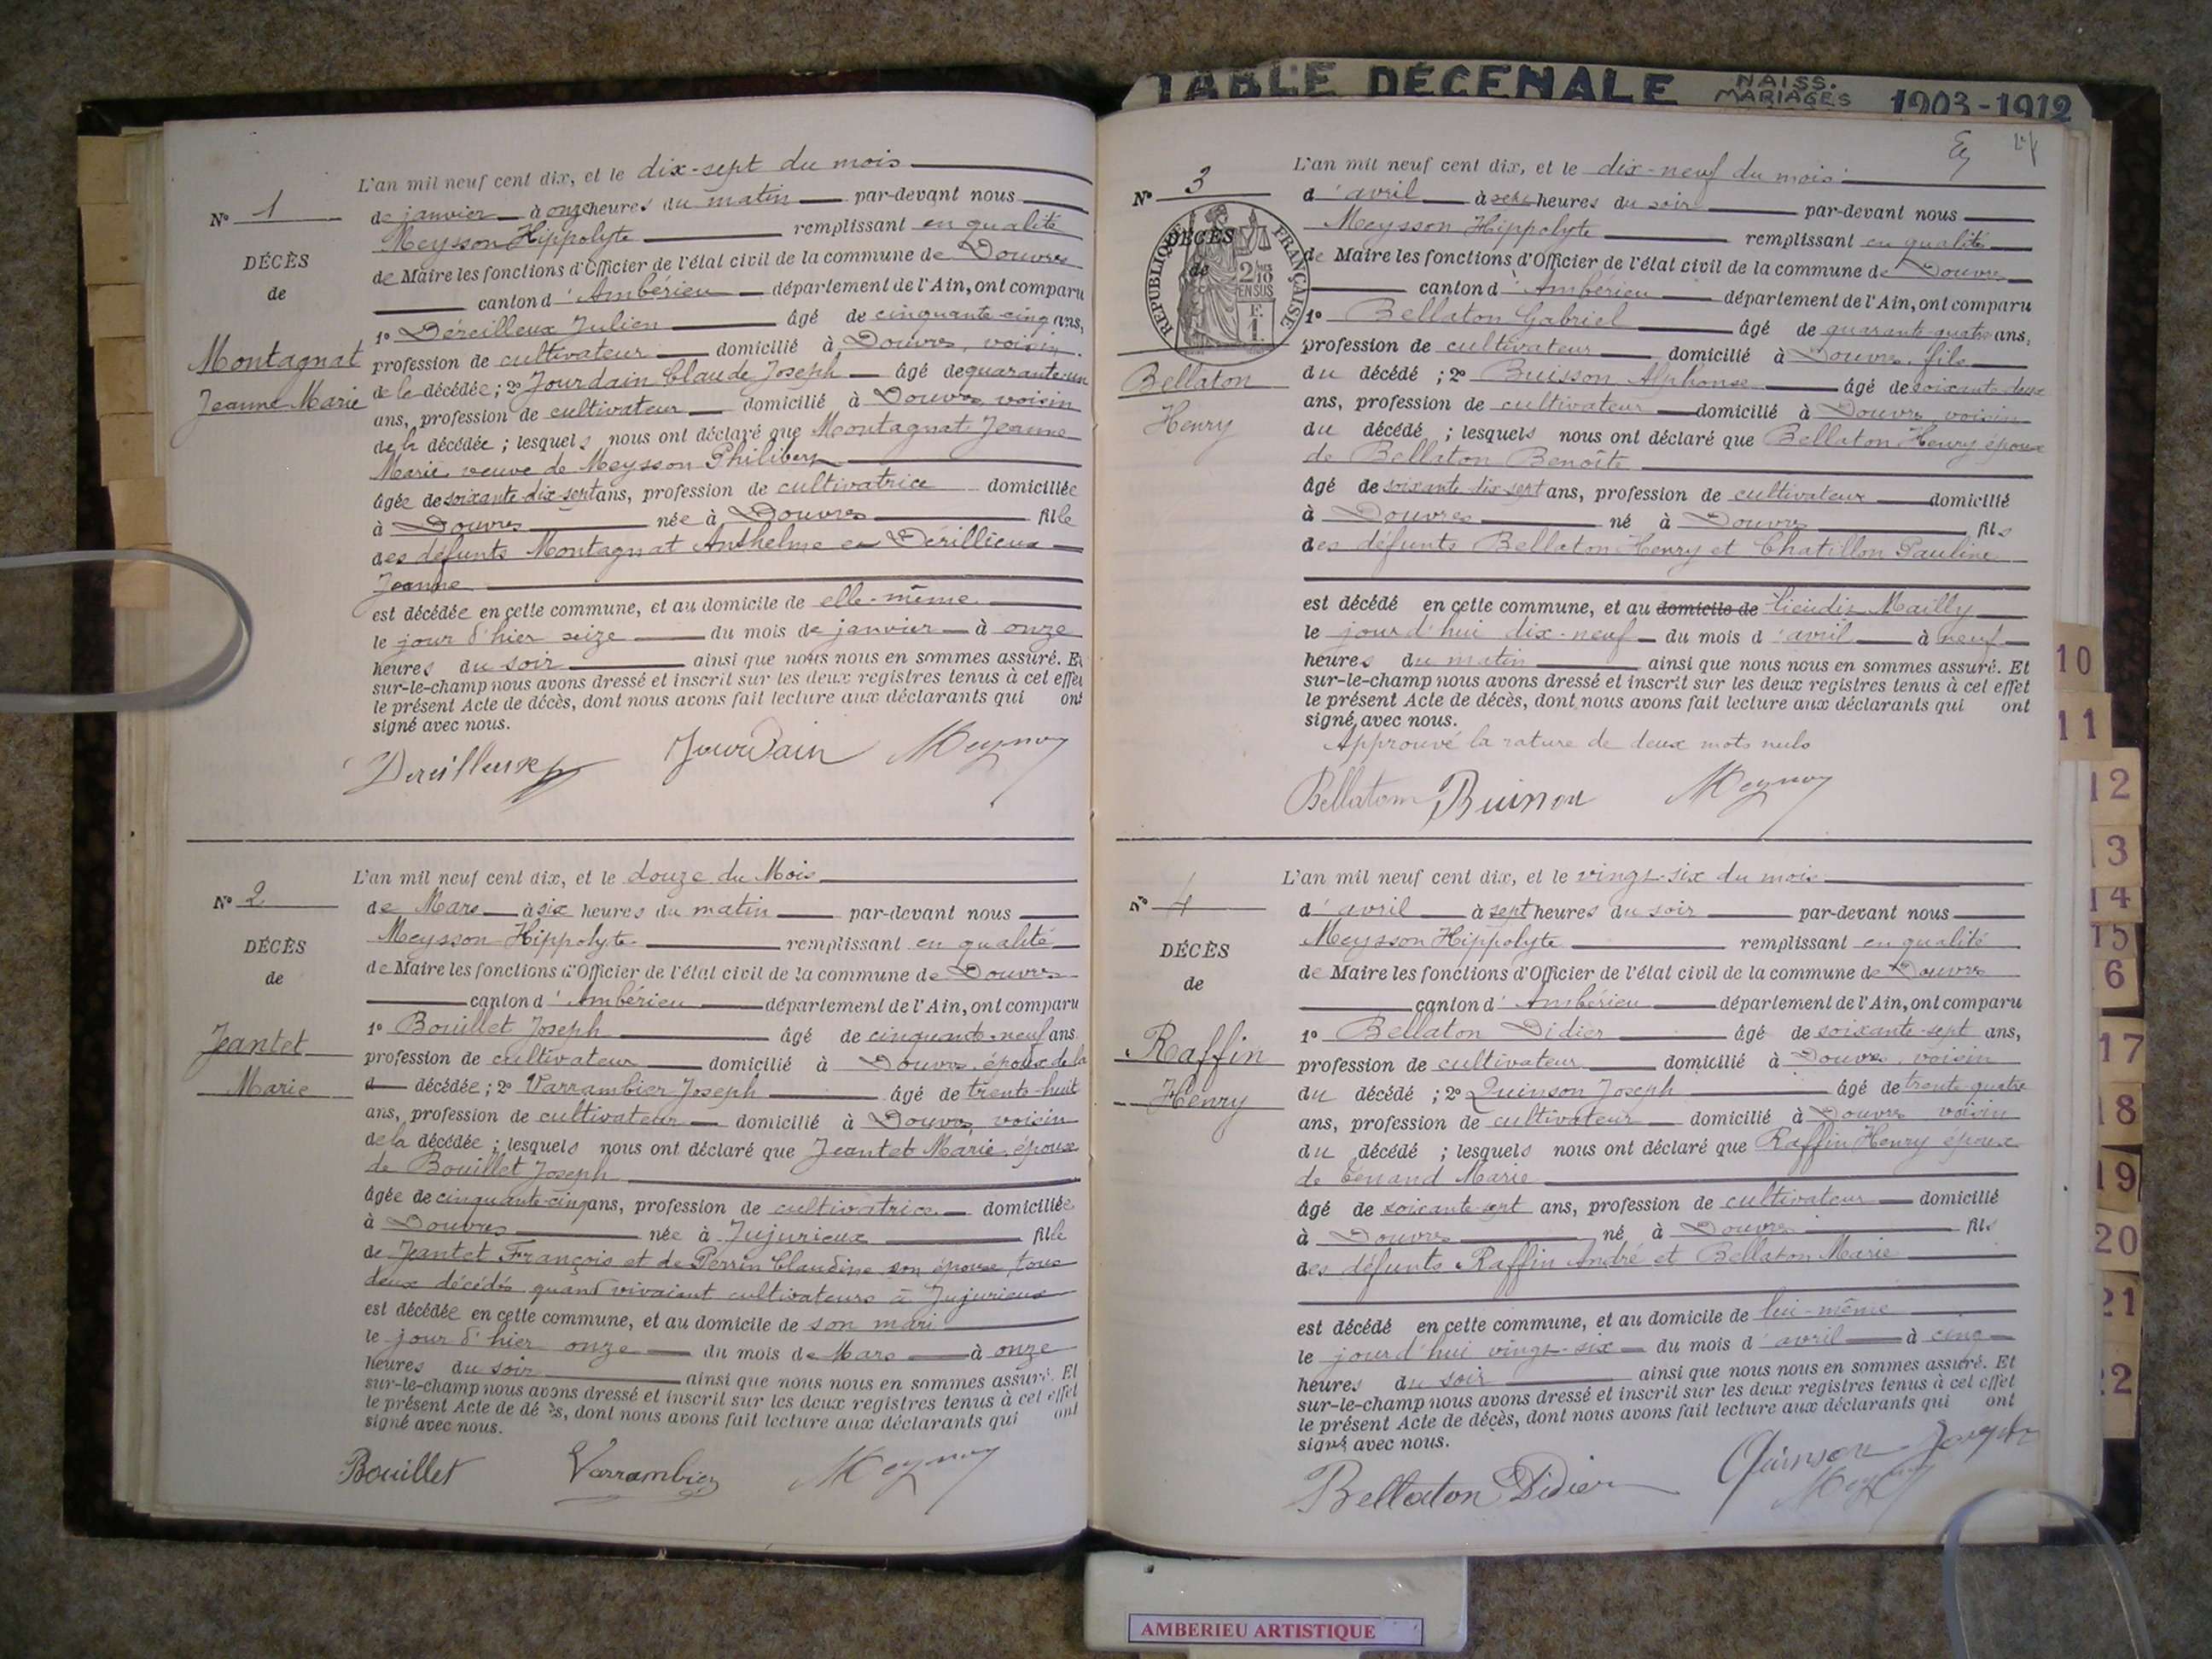 TABLE DÉCENALE NAISS. MARIAGES 1903-1912
L'an mil neuf cent dix, et le dix-sept du mois
Nº 1
de janvier à onze heures du matin par-devant nous
Meysson Hippolyte remplissant en qualité
DÉCÈS
de Maire les fonctions d'Officier de l'état civil de la commune de Douvres
de
canton d'Ambérieu département de l'Ain, ont comparu
1º Déreilleux Julien âgé de cinquante-cinq ans,
Montagnat
profession de cultivateur domicilié à Douvres, voisin
Jeanne Marie
de la décédée ; 2º Jourdain Claude Joseph âgé de quarante-un
ans, profession de cultivateur domicilié à Douvres voisin
de la décédée ; lesquels nous ont déclaré que Montagnat Jeanne
Marie veuve de Meysson Philibert
âgée de soixante-dix-sept ans, profession de cultivatrice domiciliée
à Douvres née à Douvres fille
des défunts Montagnat Anthelme et Dérillieux
Jeanne
est décédée en cette commune, et au domicile de elle-même
le jour d'hier seize du mois de janvier à onze
heures du soir ainsi que nous nous en sommes assuré. Et
sur-le-champ nous avons dressé et inscrit sur les deux registres tenus à cet effet
le présent Acte de décès, dont nous avons fait lecture aux déclarants qui ont
signé avec nous.
Dereilleux Jourdain Meysson
L'an mil neuf cent dix, et le douze du Mois
Nº 2
de Mars à six heures du matin par-devant nous
Meysson Hippolyte remplissant en qualité
DÉCÈS
de Maire les fonctions d'Officier de l'état civil de la commune de Douvres
de
canton d'Ambérieu département de l'Ain, ont comparu
1º Bouillet Joseph âgé de cinquante-neuf ans
Jeantet
profession de cultivateur domicilié à Douvres, époux de la
Marie
d décédée ; 2º Varrambier Joseph âgé de trente-huit
ans, profession de cultivateur domicilié à Douvres, voisin
de la décédée ; lesquels nous ont déclaré que Jeantet Marie, épouse
de Bouillet Joseph
âgée de cinquante-cinq ans, profession de cultivatrice domiciliée
à Douvres née à Jujurieux fille
de Jeantet François et de Perrin Claudine son épouse, tous
deux décédés quand vivaient cultivateurs à Jujurieux
est décédée en cette commune, et au domicile de son mari
le jour d'hier onze du mois de Mars à onze
heures du soir ainsi que nous nous en sommes assuré. Et
sur-le-champ nous avons dressé et inscrit sur les deux registres tenus à cet effet
le présent Acte de décès, dont nous avons fait lecture aux déclarants qui ont
signé avec nous.
Bouillet Varrambier Meysson
L'an mil neuf cent dix, et le dix-neuf du mois
Nº 3
d'avril à sept heures du soir par-devant nous
Meysson Hippolyte remplissant en qualité
RÉPUBLIQUE FRANÇAISE
DÉCÈS
de
2/10 EN SUS
F. 1
de Maire les fonctions d'Officier de l'état civil de la commune de Douvres
canton d'Ambérieu département de l'Ain, ont comparu
1º Bellaton Gabriel âgé de quarante-quatre ans,
profession de cultivateur domicilié à Douvres, fils
Bellaton
du décédé ; 2º Buisson Alphonse âgé de soixante-deux
ans, profession de cultivateur domicilié à Douvres voisin
Henry
du décédé ; lesquels nous ont déclaré que Bellaton Henry époux
de Bellaton Benoîte
âgé de soixante-dix-sept ans, profession de cultivateur domicilié
à Douvres né à Douvres fils
des défunts Bellaton Henry et Chatillon Pauline
est décédé en cette commune, et au domicile de lieudit Mailly
le jourd'hui dix-neuf du mois d'avril à neuf
heures du matin ainsi que nous nous en sommes assuré. Et
sur-le-champ nous avons dressé et inscrit sur les deux registres tenus à cet effet
le présent Acte de décès, dont nous avons fait lecture aux déclarants qui ont
signé avec nous.
Approuvé la rature de deux mots nuls
Bellaton Buisson Meysson
L'an mil neuf cent dix, et le vingt-six du mois
Nº 4
d'avril à sept heures du soir par-devant nous
Meysson Hippolyte remplissant en qualité
DÉCÈS
de Maire les fonctions d'Officier de l'état civil de la commune de Douvres
de
canton d'Ambérieu département de l'Ain, ont comparu
1º Bellaton Didier âgé de soixante-sept ans,
Raffin
profession de cultivateur domicilié à Douvres, voisin
Henry
du décédé ; 2º Quinson Joseph âgé de trente-quatre
ans, profession de cultivateur domicilié à Douvres voisin
du décédé ; lesquels nous ont déclaré que Raffin Henry époux
de Tenand Marie
âgé de soixante-sept ans, profession de cultivateur domicilié
à Douvres né à Douvres fils
des défunts Raffin André et Bellaton Marie
est décédé en cette commune, et au domicile de lui-même
le jourd'hui vingt-six du mois d'avril à cinq
heures du soir ainsi que nous nous en sommes assuré. Et
sur-le-champ nous avons dressé et inscrit sur les deux registres tenus à cet effet
le présent Acte de décès, dont nous avons fait lecture aux déclarants qui ont
signé avec nous.
Bellaton Didier Quinson Joseph
Meysson
10
11
12
13
14
15
16
17
18
19
20
21
22
AMBERIEU ARTISTIQUE